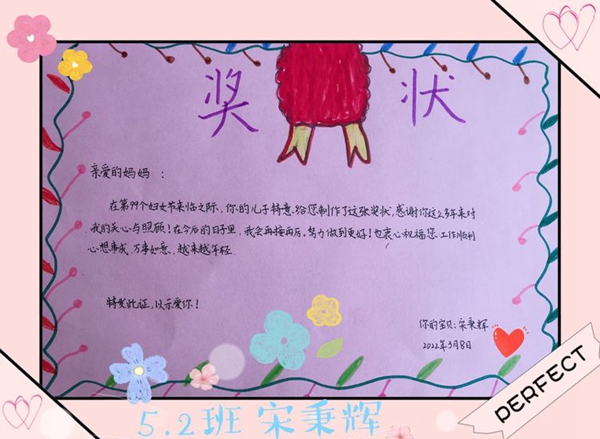 奖 状
亲爱的妈妈：
在第99个妇女节来临之际，你的儿子特意给您制作了这张奖状，感谢你这么多年来对
我的关心与照顾！在今后的日子里，我会再接再厉，努力做到更好！也衷心祝福您工作顺利
心想事成，万事如意，越来越年轻。
特发此证，以示爱你！
你的宝贝：宋秉辉
2022年3月8日
PERFECT
5.2班 宋秉辉